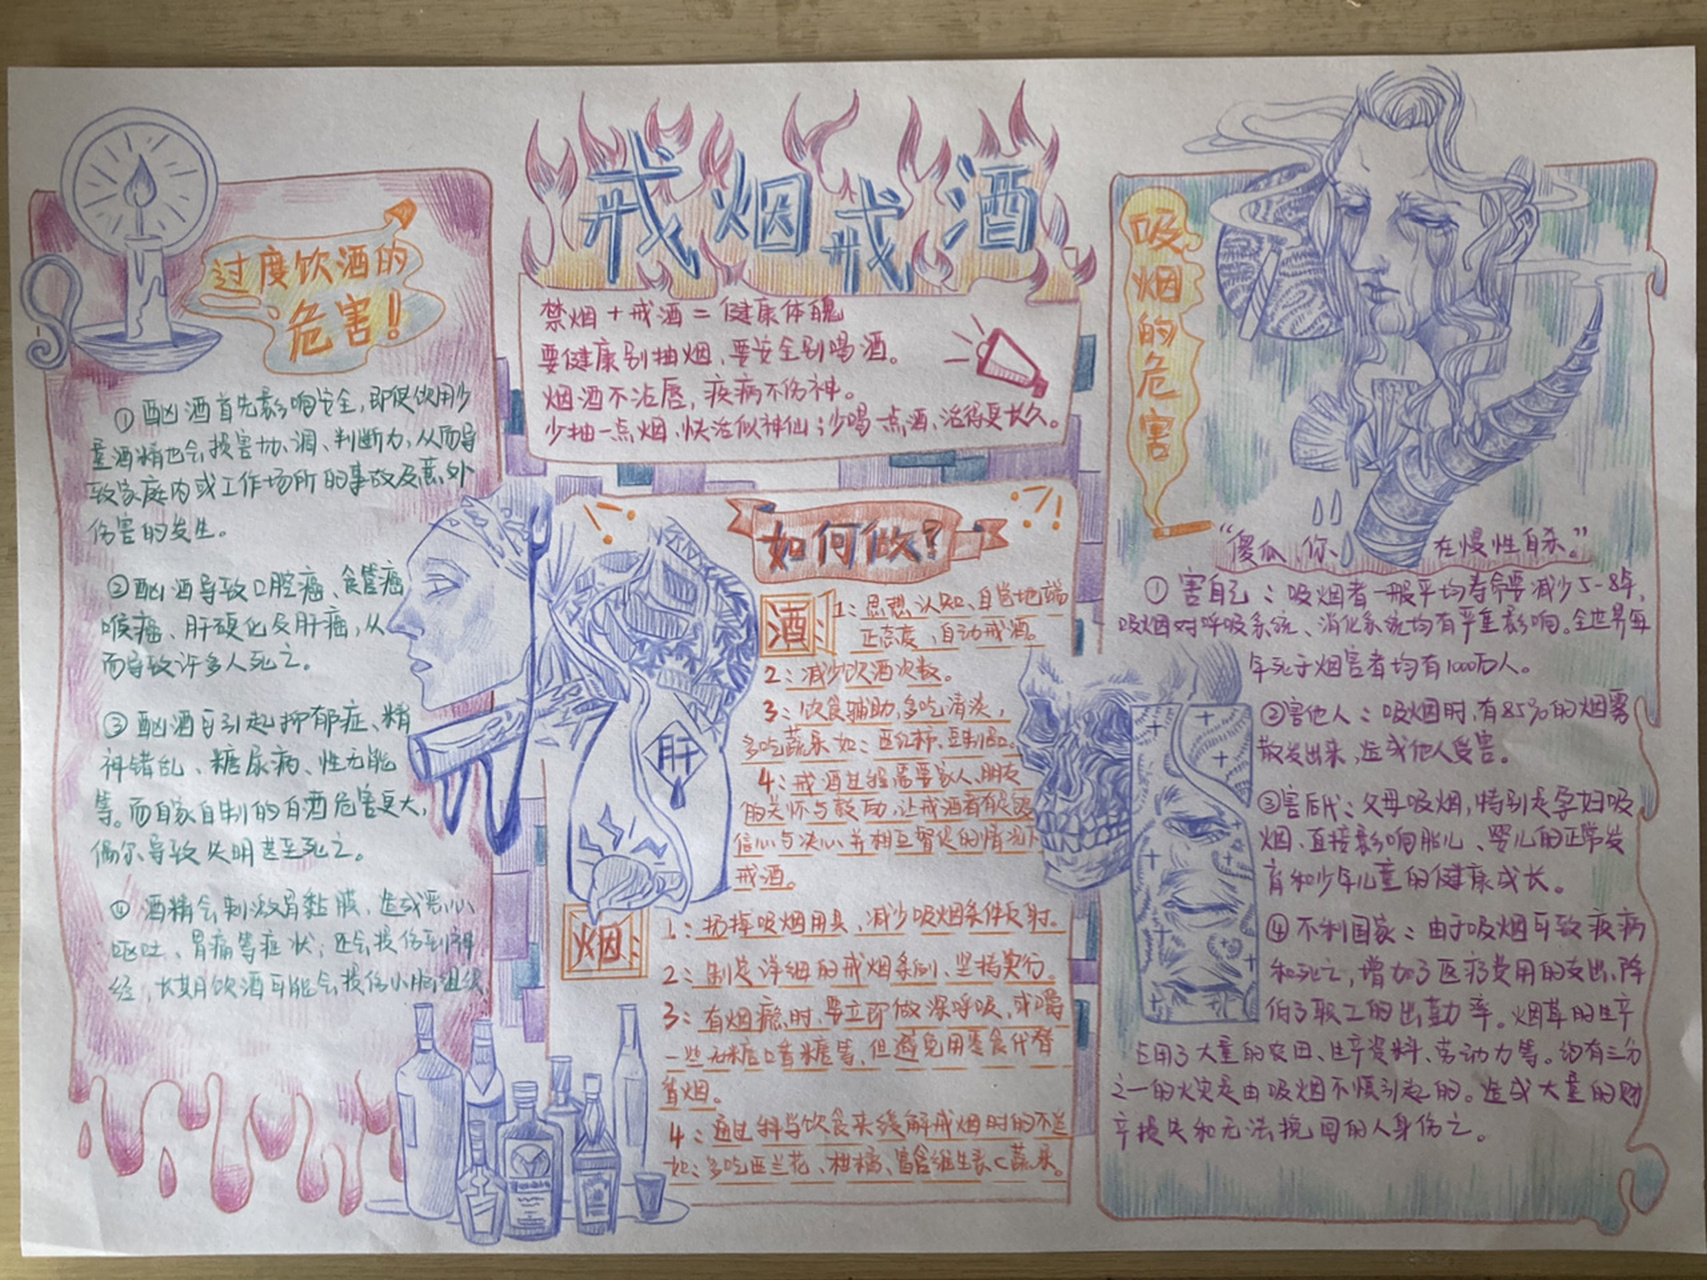 戒烟戒酒
禁烟+戒酒=健康体魄
要健康别抽烟、要安全别喝酒。
烟酒不沾唇，疾病不伤神。
少抽一点烟、快活似神仙；少喝一点酒、活得更长久。
过度饮酒的
危害！
①酗酒首先影响安全，即使饮用少
量酒精也会损害协、调、判断力，从而导
致家庭内或工作场所的事故及意外
伤害的发生。
②酗酒导致口腔癌、食管癌
喉癌、肝硬化及肝癌，从
而导致许多人死亡。
③酗酒可引起抑郁症、精
神错乱、糖尿病、性无能
等。而自家自制的白酒危害更大，
偶尔导致失明甚至死亡。
④酒精会刺激胃黏膜，造成恶心
呕吐、胃痛等症状；还会损伤到神
经，长期饮酒可能会损伤小脑组织
肝
如何做？
酒：
1：思想认知、自觉地端
正态度，自动戒酒。
2：减少饮酒次数。
3：饮食辅助，多吃清淡，
多吃蔬果如：西红柿、豆制品。
4：戒酒过程需要家人、朋友
的关怀与鼓励，让戒酒者有足够
信心与决心，并相互督促的情况下
戒酒。
烟：
1：扔掉吸烟用具，减少吸烟条件反射。
2：制定详细的戒烟条例、坚持实行。
3：有烟瘾时，要立即做深呼吸，或嚼
一些无糖口香糖等，但避免用零食代替
香烟。
4：通过科学饮食来缓解戒烟时的不适
如：多吃西兰花、柑橘、富含维生素C蔬果。
吸烟的危害
“傻瓜 你、 在慢性自杀。”
①害自己：吸烟者一般平均寿命要减少5-8年，
吸烟对呼吸系统、消化系统均有严重影响。全世界每
年死于烟害者均有1000万人。
②害他人：吸烟时，有85%的烟雾
散发出来，造成他人受害。
③害后代：父母吸烟，特别是孕妇吸
烟、直接影响胎儿、婴儿的正常发
育和少年儿童的健康成长。
④不利国家：由于吸烟可致疾病
和死亡，增加了医疗费用的支出、降
低了职工的出勤率。烟草的生产
占用了大量的农田、生产资料、劳动力等。约有三分
之一的火灾是由吸烟不慎引起的。造成大量的财
产损失和无法挽回的人身伤亡。